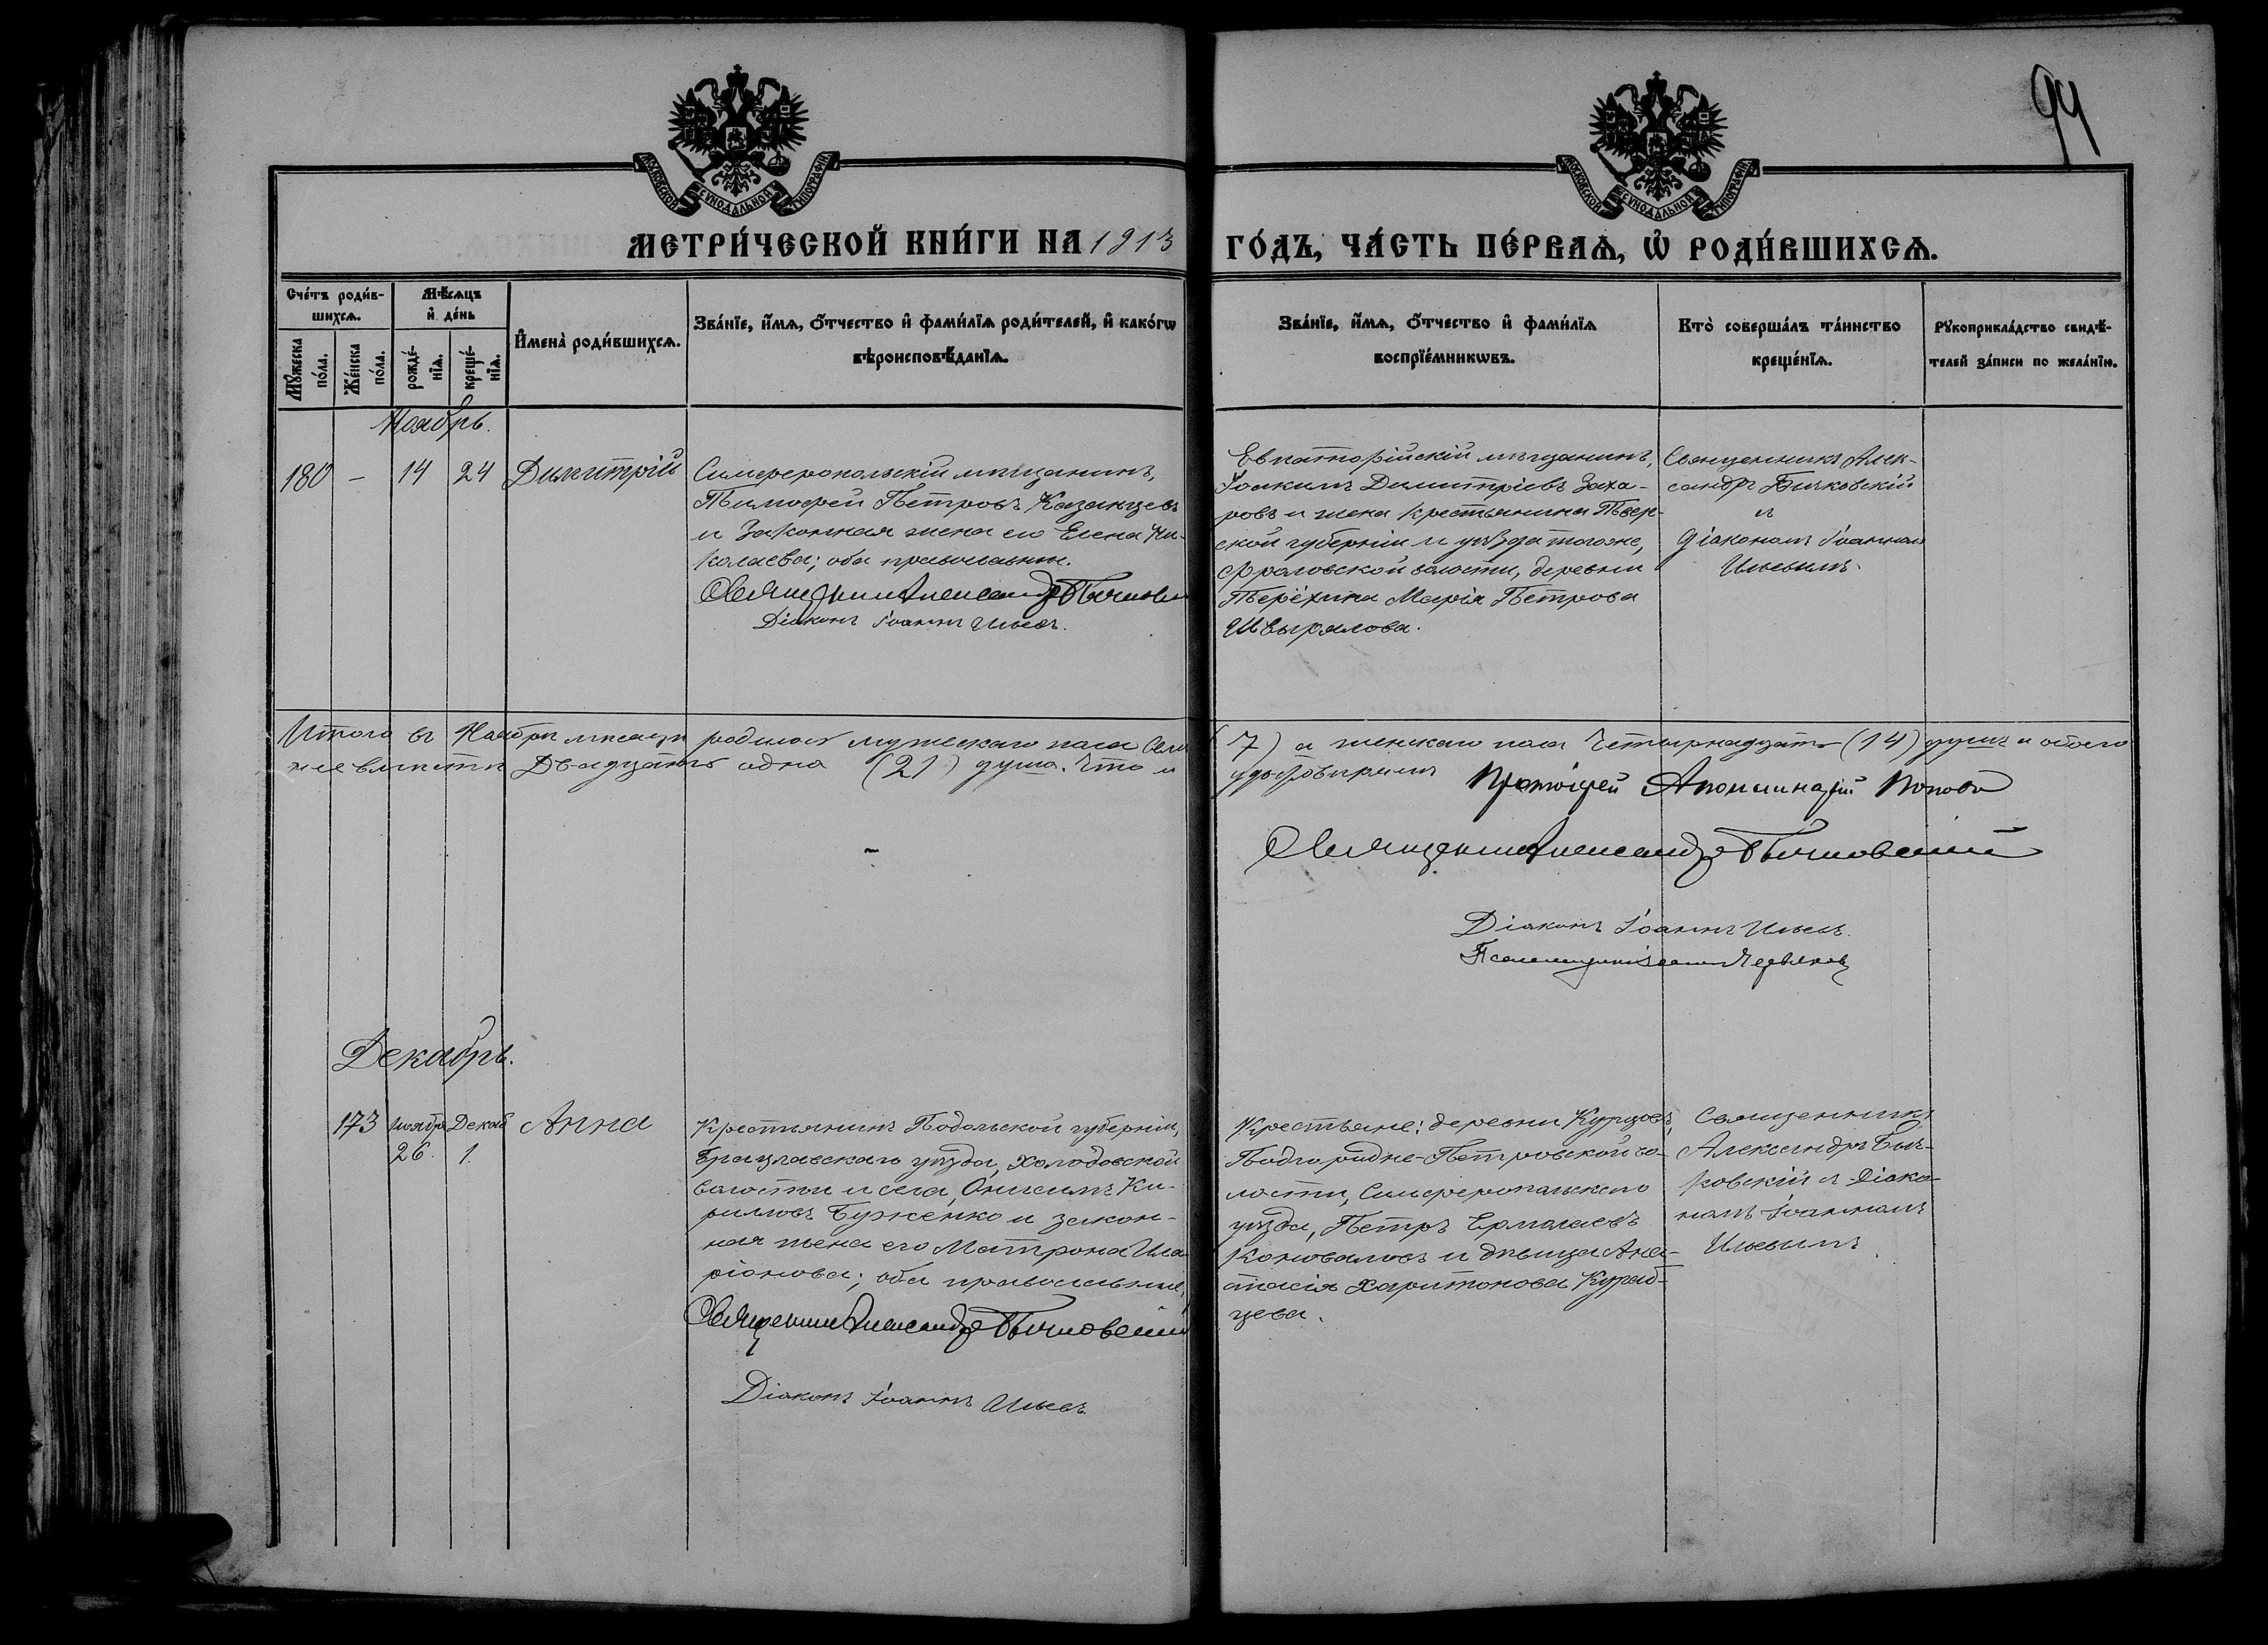 94
МОСКОВСКОЙ СѴНОДАЛЬНОЙ ТИПОГРАФІИ
МОСКОВСКОЙ СѴНОДАЛЬНОЙ ТИПОГРАФІИ
МЕТРИ́ЧЕСКОЙ КНИ́ГИ НА 1913 ГО́ДЪ, ЧА́СТЬ ПЕ́РВАѦ, Ѡ҆ РОДИ́ВШИХСѦ.
Сче́тъ роди́в-
шихсѧ.
Мѣ́сѧцъ
и҆ де́нь
Мꙋ́жеска
по́ла.
Же́нска
по́ла.
рожде́-
нїѧ.
креще́-
нїѧ.
И҆мена̀ роди́вшихсѧ.
Зва́нїе, и҆́мѧ, ѻ҆́тчество и҆ фами́лїѧ роди́телей, и҆ како́гѡ
вѣроисповѣ́данїѧ.
Зва́нїе, и҆́мѧ, ѻ҆́тчество и҆ фами́лїѧ
воспрїе́мникѡвъ.
Кто̀ соверша́лъ та́инство
креще́нїѧ.
Рꙋкоприкла́дство свидѣ́-
телей за́писи по жела́нїю.
Ноябрь.
180 – 14 24 Димитрій
Симферопольскій мѣщанинъ,
Тимофей Петровъ Казанцевъ
и законная жена его Елена Ни-
колаева; оба православные.
Священникъ Александръ Бычковскій
Діаконъ Іоаннъ Ильевъ.
Евпаторійскій мѣщанинъ,
Іоакимъ Димитріевъ Заха-
ровъ и жена крестьянина Твер-
ской губерніи и уѣзда того же,
волости, деревни
Марія Петрова
Швырялова.
Священникъ Алек-
сандръ Бычковскій
и
діакономъ Іоанномъ
Ильевымъ.
Итого въ Ноябрѣ мѣсяцѣ родилось мужескаго пола семь (7) а женскаго пола четырнадцать (14) душъ и обоего
пола вмѣстѣ Двадцать одна (21) душа. Что и удостовѣряемъ
Протоіерей Аполлинарій Поповъ
Священникъ Александръ Бычковскій
Діаконъ Іоаннъ Ильевъ.
Псаломщикъ
Декабрь.
173 Ноябр. Декаб. Анна
26. 1.
Крестьянинъ Подольской губерніи,
Брацлавскаго уѣзда, Холодовской
волости и села, Онисимъ Ки-
рилловъ Бурженко и закон-
ная жена его Матрона Ила-
ріонова; оба православные,
Священникъ Александръ Бычковскій
Діаконъ Іоаннъ Ильевъ.
Крестьяне: деревни Курцовъ,
Подгородне-Петровской во-
лости, Симферопольскаго
уѣзда, Петръ Ермолаевъ
Коноваловъ и дѣвица Ана-
стасія Харитонова
Священникъ
Александръ Быч-
ковскій съ Діако-
номъ Іоанномъ
Ильевымъ.